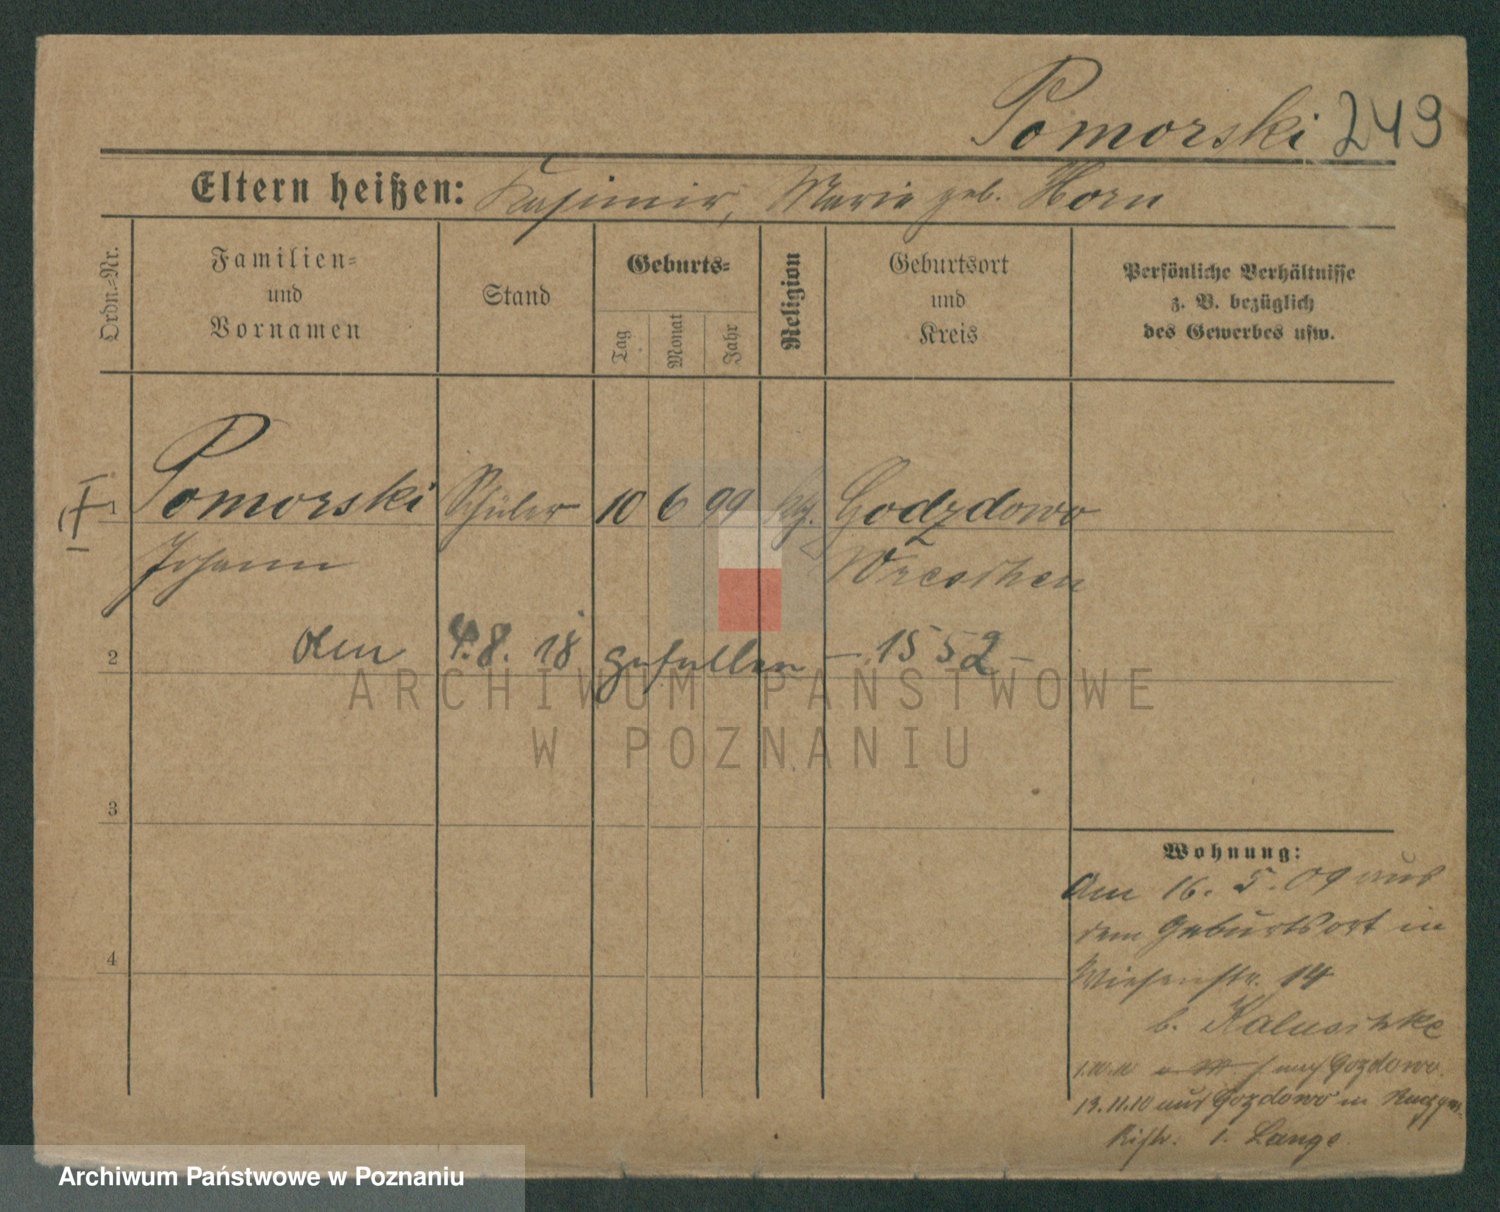 Pomorski 249
Eltern heißen: Kasimir, Marie geb. Horn
Ordn.=Nr.
Familien=
und
Vornamen
Stand
Geburts=
Tag
Monat
Jahr
Religion
Geburtsort
und
Kreis
Persönliche Verhältnisse
z. B. bezüglich
des Gewerbes usw.
1 Pomorski Schüler 10 6 99 Godzdowo
Johann Wreschen
2 den 4.8.18 gefallen – 1552 –
3
4
Wohnung:
Am 16. 5. 09 aus
dem Geburtsort in
Wiesenstr. 14
b.
nach Gozdowo.
19.11.10 aus Gozdowo in
b. Lange
ARCHIWUM PAŃSTWOWE
W POZNANIU
Archiwum Państwowe w Poznaniu